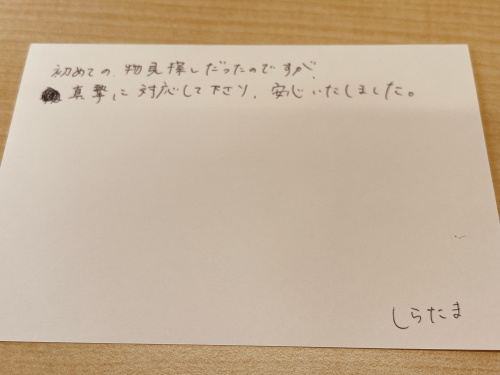 初めての物見探しだったのですが、
真摯に対応して下さり、安心いたしました。
しらたま